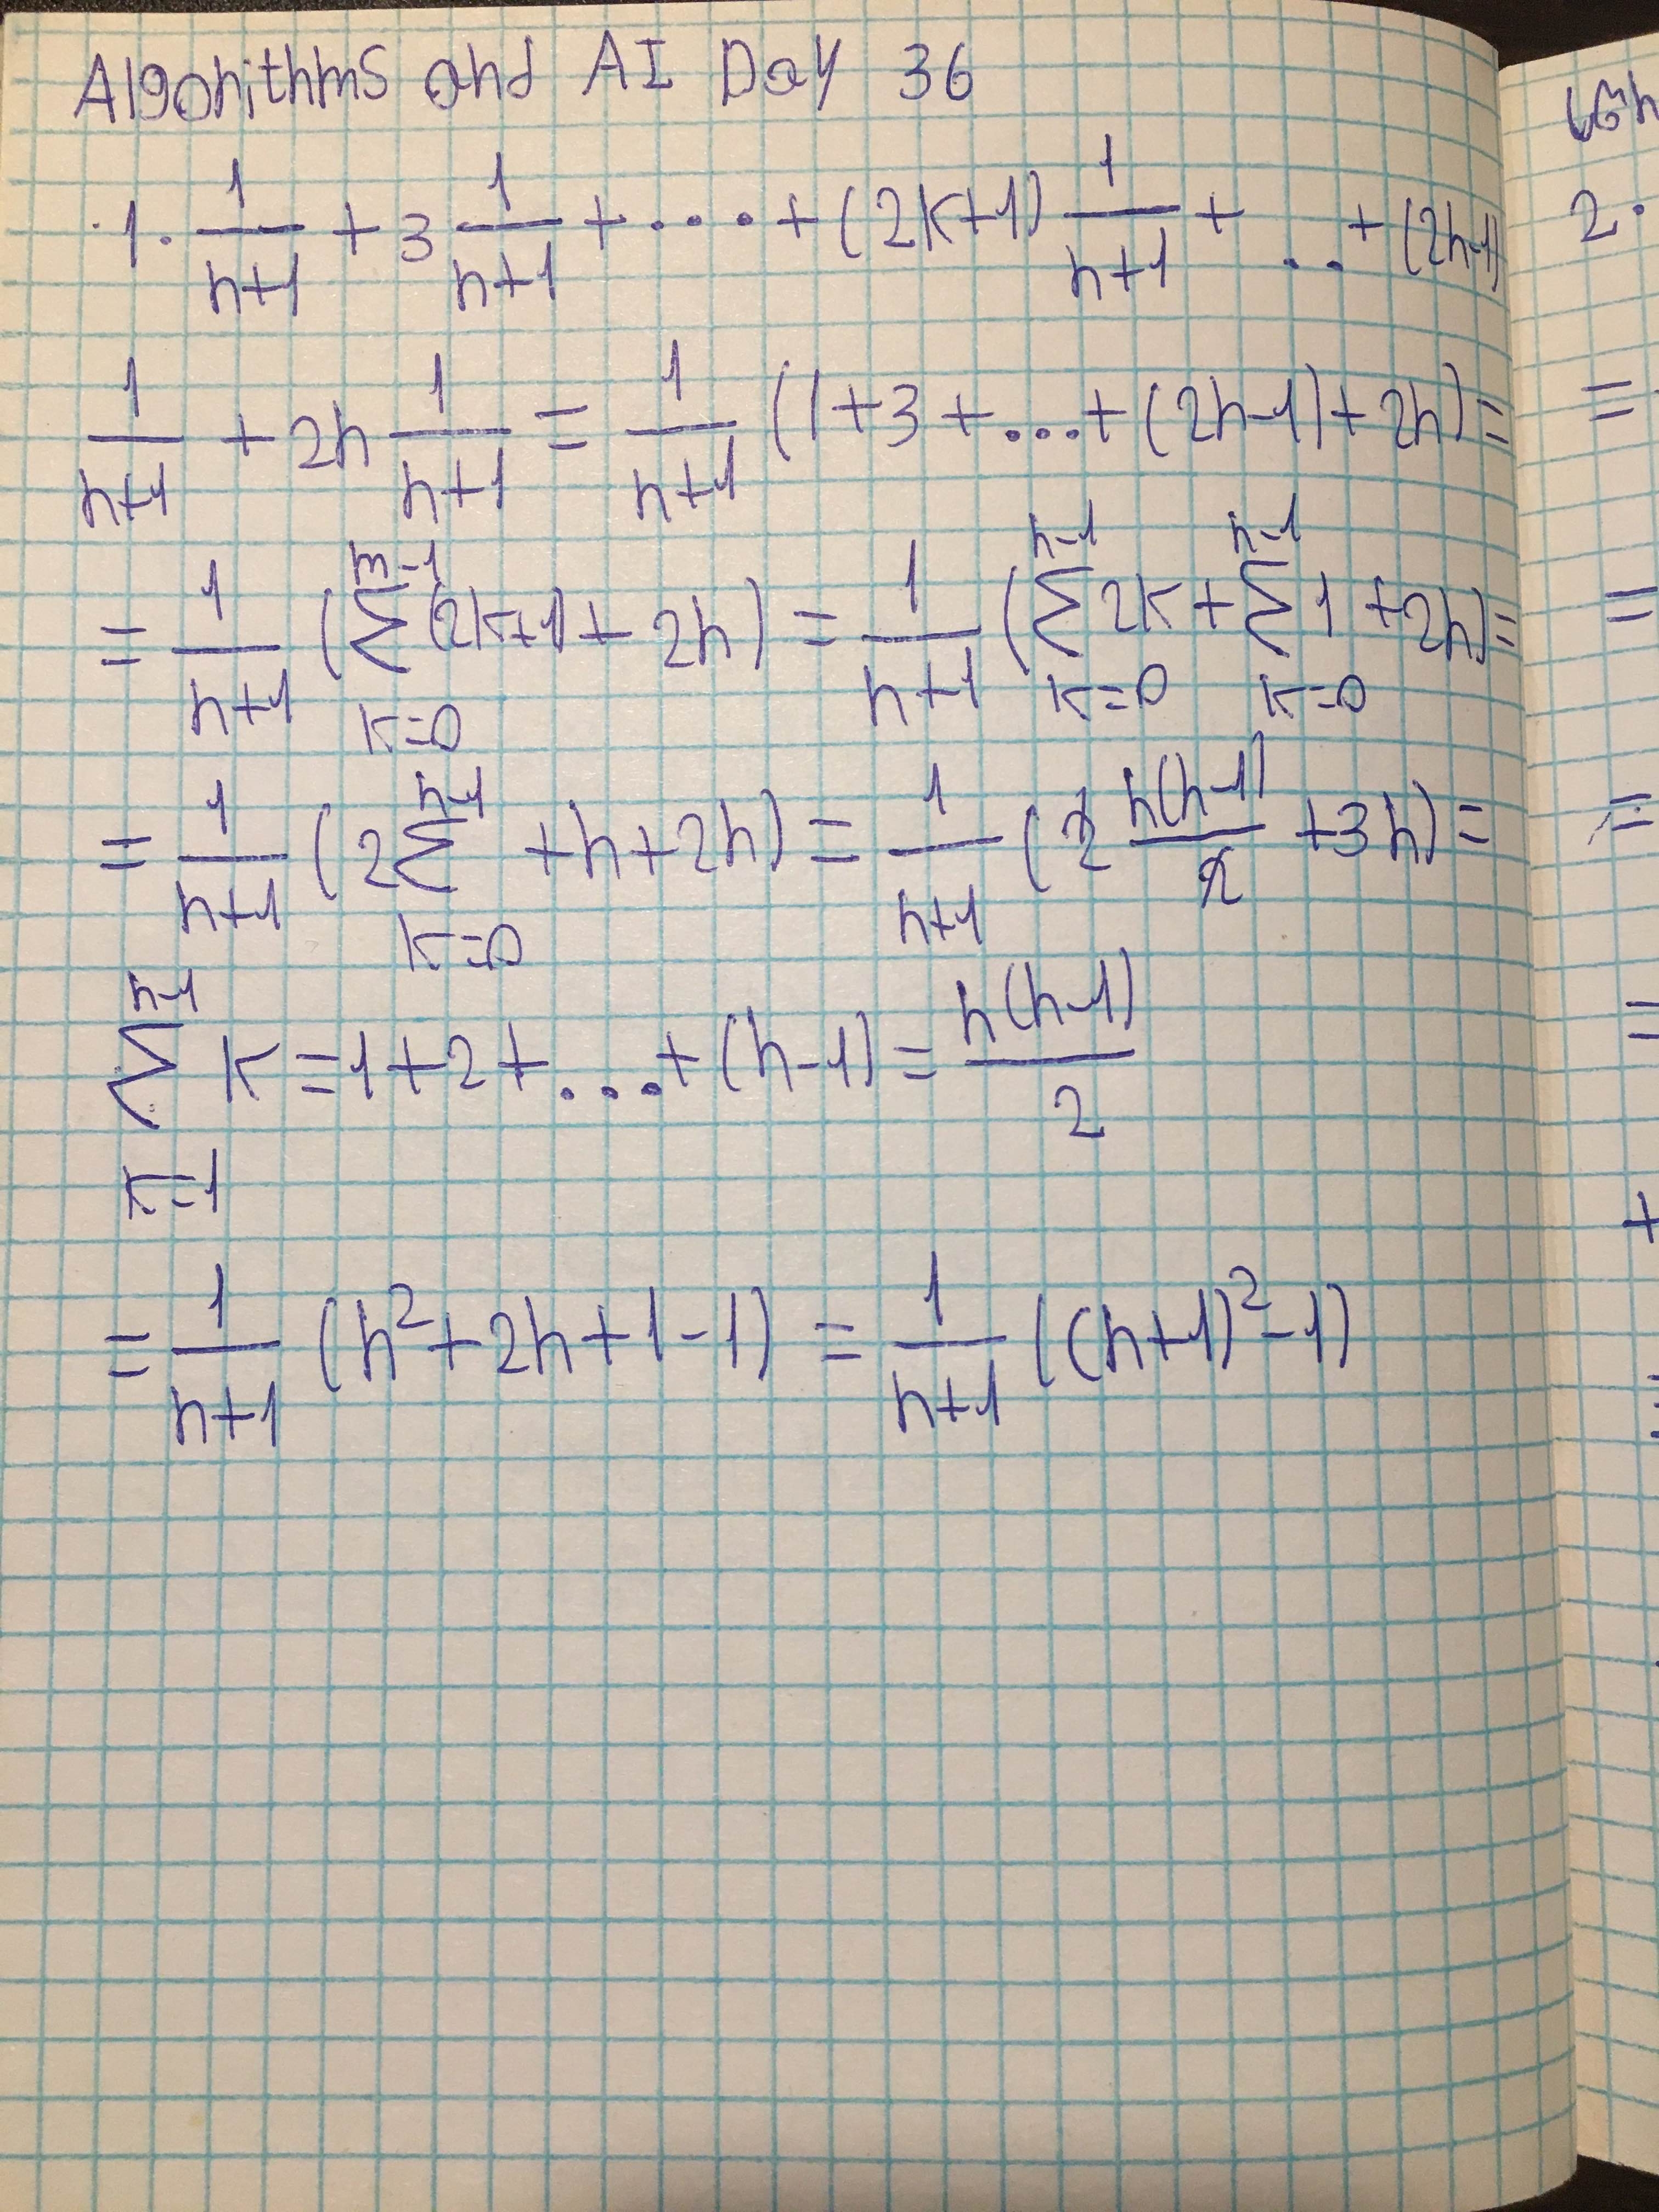 Algorithms and AI Day 36
1 · 1/(n+1) + 3 1/(n+1) + .... + (2k+1) 1/(n+1) + ... + (2n-1)
1/(n+1) + 2n 1/(n+1) = 1/(n+1) (1+3+...+(2n-1)+2n) =
= 1/(n+1) (∑_{k=0}^{n-1} (2k+1) + 2n) = 1/(n+1) (∑_{k=0}^{n-1} 2k + ∑_{k=0}^{n-1} 1 + 2n) =
= 1/(n+1) (2∑_{k=0}^{n-1} + n + 2n) = 1/(n+1) (2 n(n-1)/2 + 3n) =
∑_{k=1}^{n-1} k = 1+2+...+(n-1) = n(n-1)/2
= 1/(n+1) (n²+2n+1-1) = 1/(n+1) ((n+1)²-1)
2 ·
=
=
=
=
+